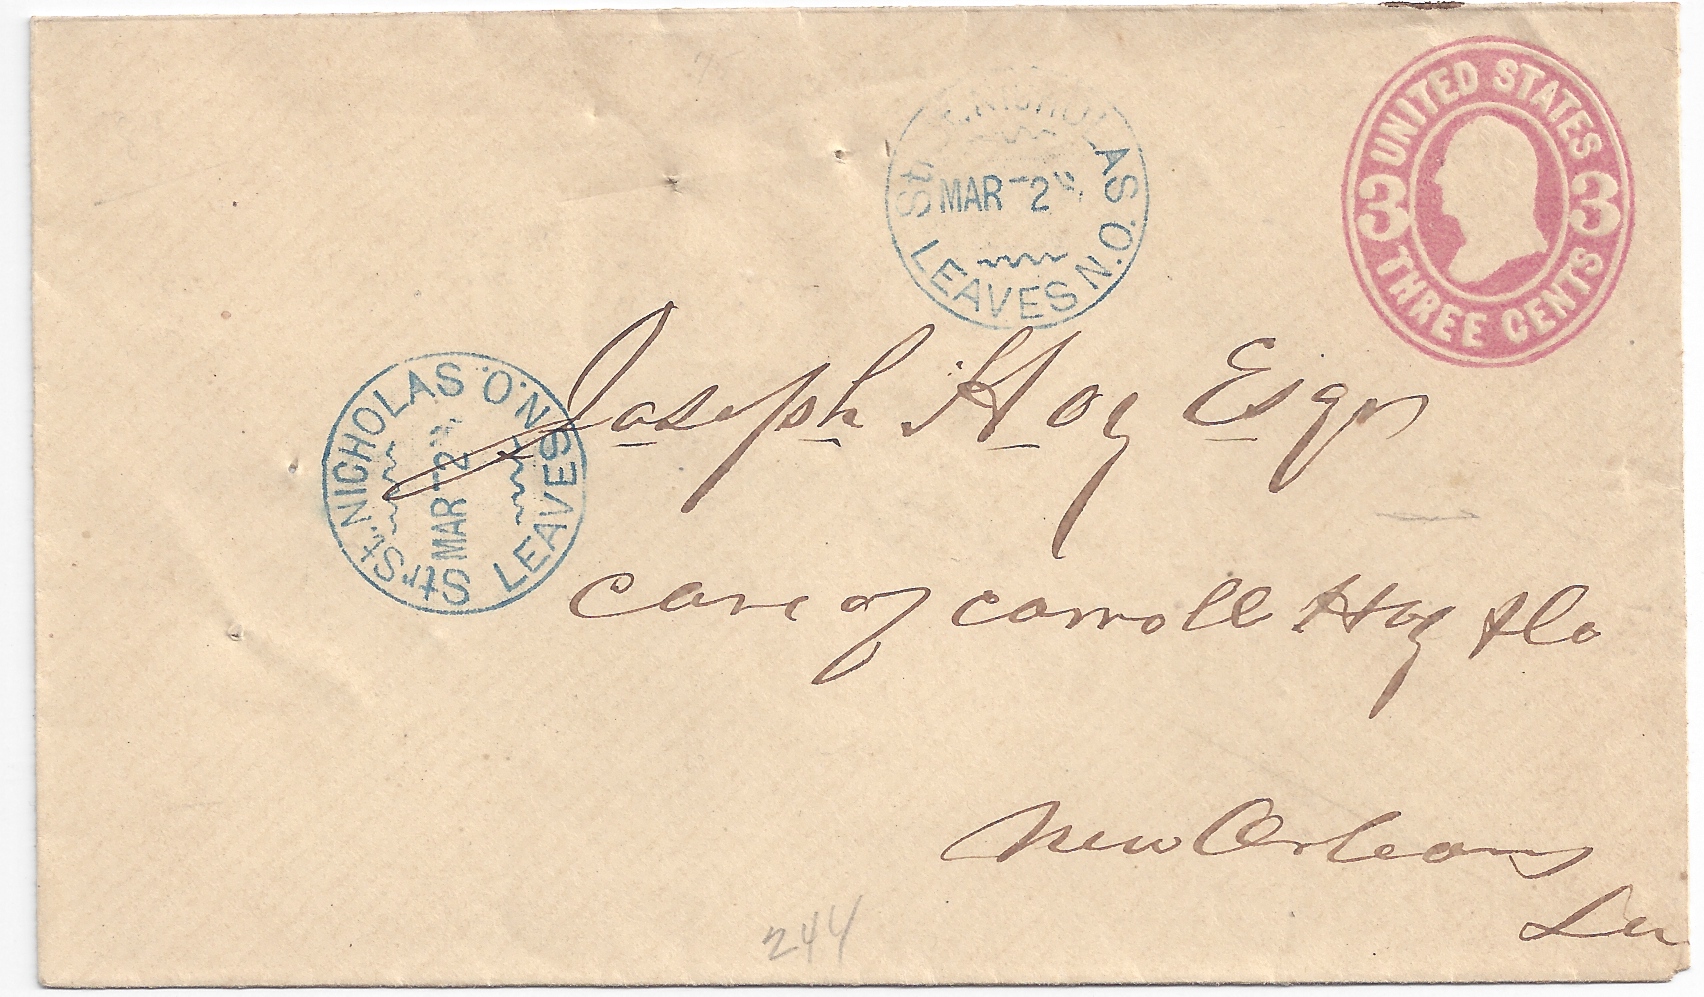 UNITED STATES
3 3
THREE CENTS
Str St. NICHOLAS
MAR 2
LEAVES N.O.
Str St. NICHOLAS
MAR 2
LEAVES N.O.
Joseph Hoy Esqr
Care of Carroll Hoy & Co
New Orleans
La
244